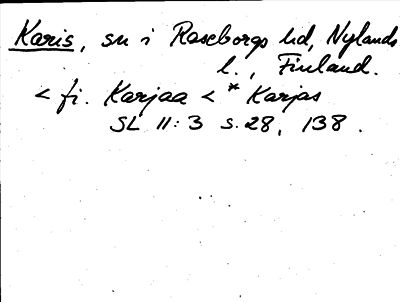 Karis, sn i Raseborgs hd, Nylands
l., Finland.
< fi. Karjaa < * Karjas
SL II:3 s. 28, 138.